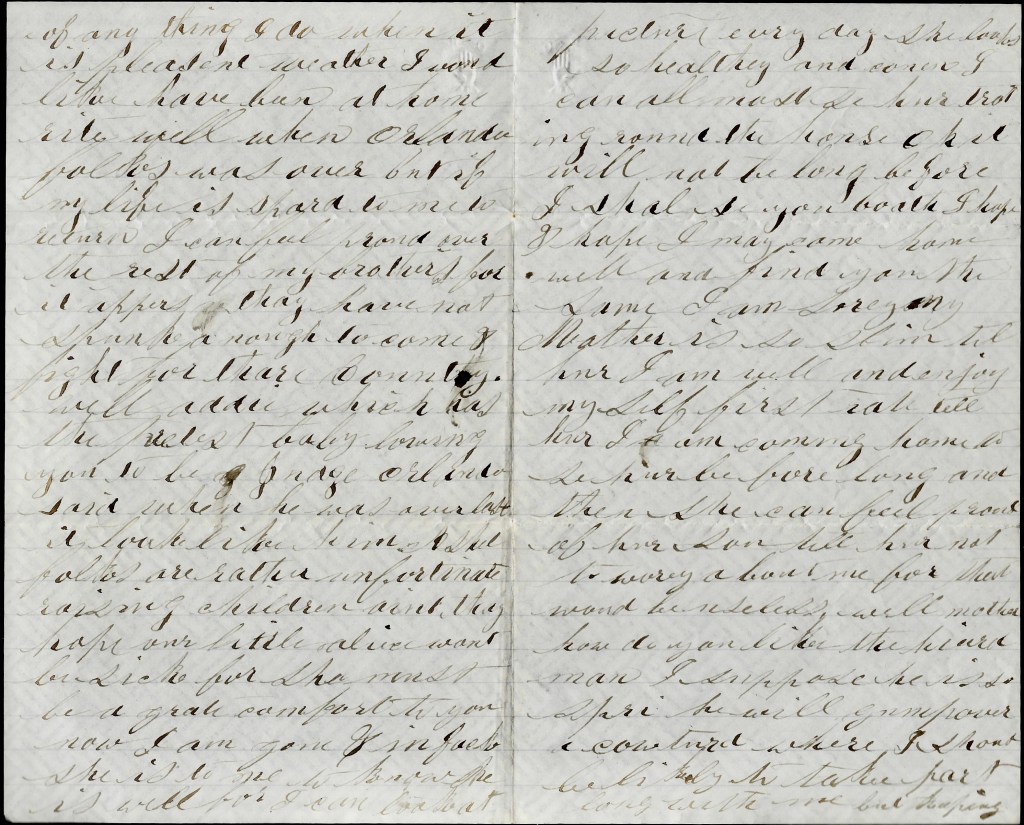 of any thing I do when it
is pleasent weather I would
like have ben at home
rite well when Orlando
folkes was over but if
my life is spard to me to
return I can feel proud over
the rest of my brothers for
it appers thay have not
spunk a nough to come &
fight for thare Country.
well addie which has
the pretest baby lowing
you to be a Judge Orlando
said when he was over last
it look like hims
folkes are rather unfortinate
raising children aint thay
hope our little alice wont
be sick for she must
be a grate comfort to you
now I am gone & in fact
she is to me to know she
is well for I can look at
picture every day she looks
so healthey and I
can all most se hur trot
ing round the house Oh it
will not be long before
I shal se you boath I hope
& hope I may come home
well and find you the
same I am sorey my
Mother is so slim tel
hur I am well and enjoy
my self first rate tell
hur I am comming home to
se hur be fore long and
then she can feel proud
of hur son tell hur not
to worey a bout me for that
woud be useless well mother
how do you like the hierd
man I suppose he is so
spri he will gump over
a cowturd where I shoud
be likely to take part
long with me but hoping